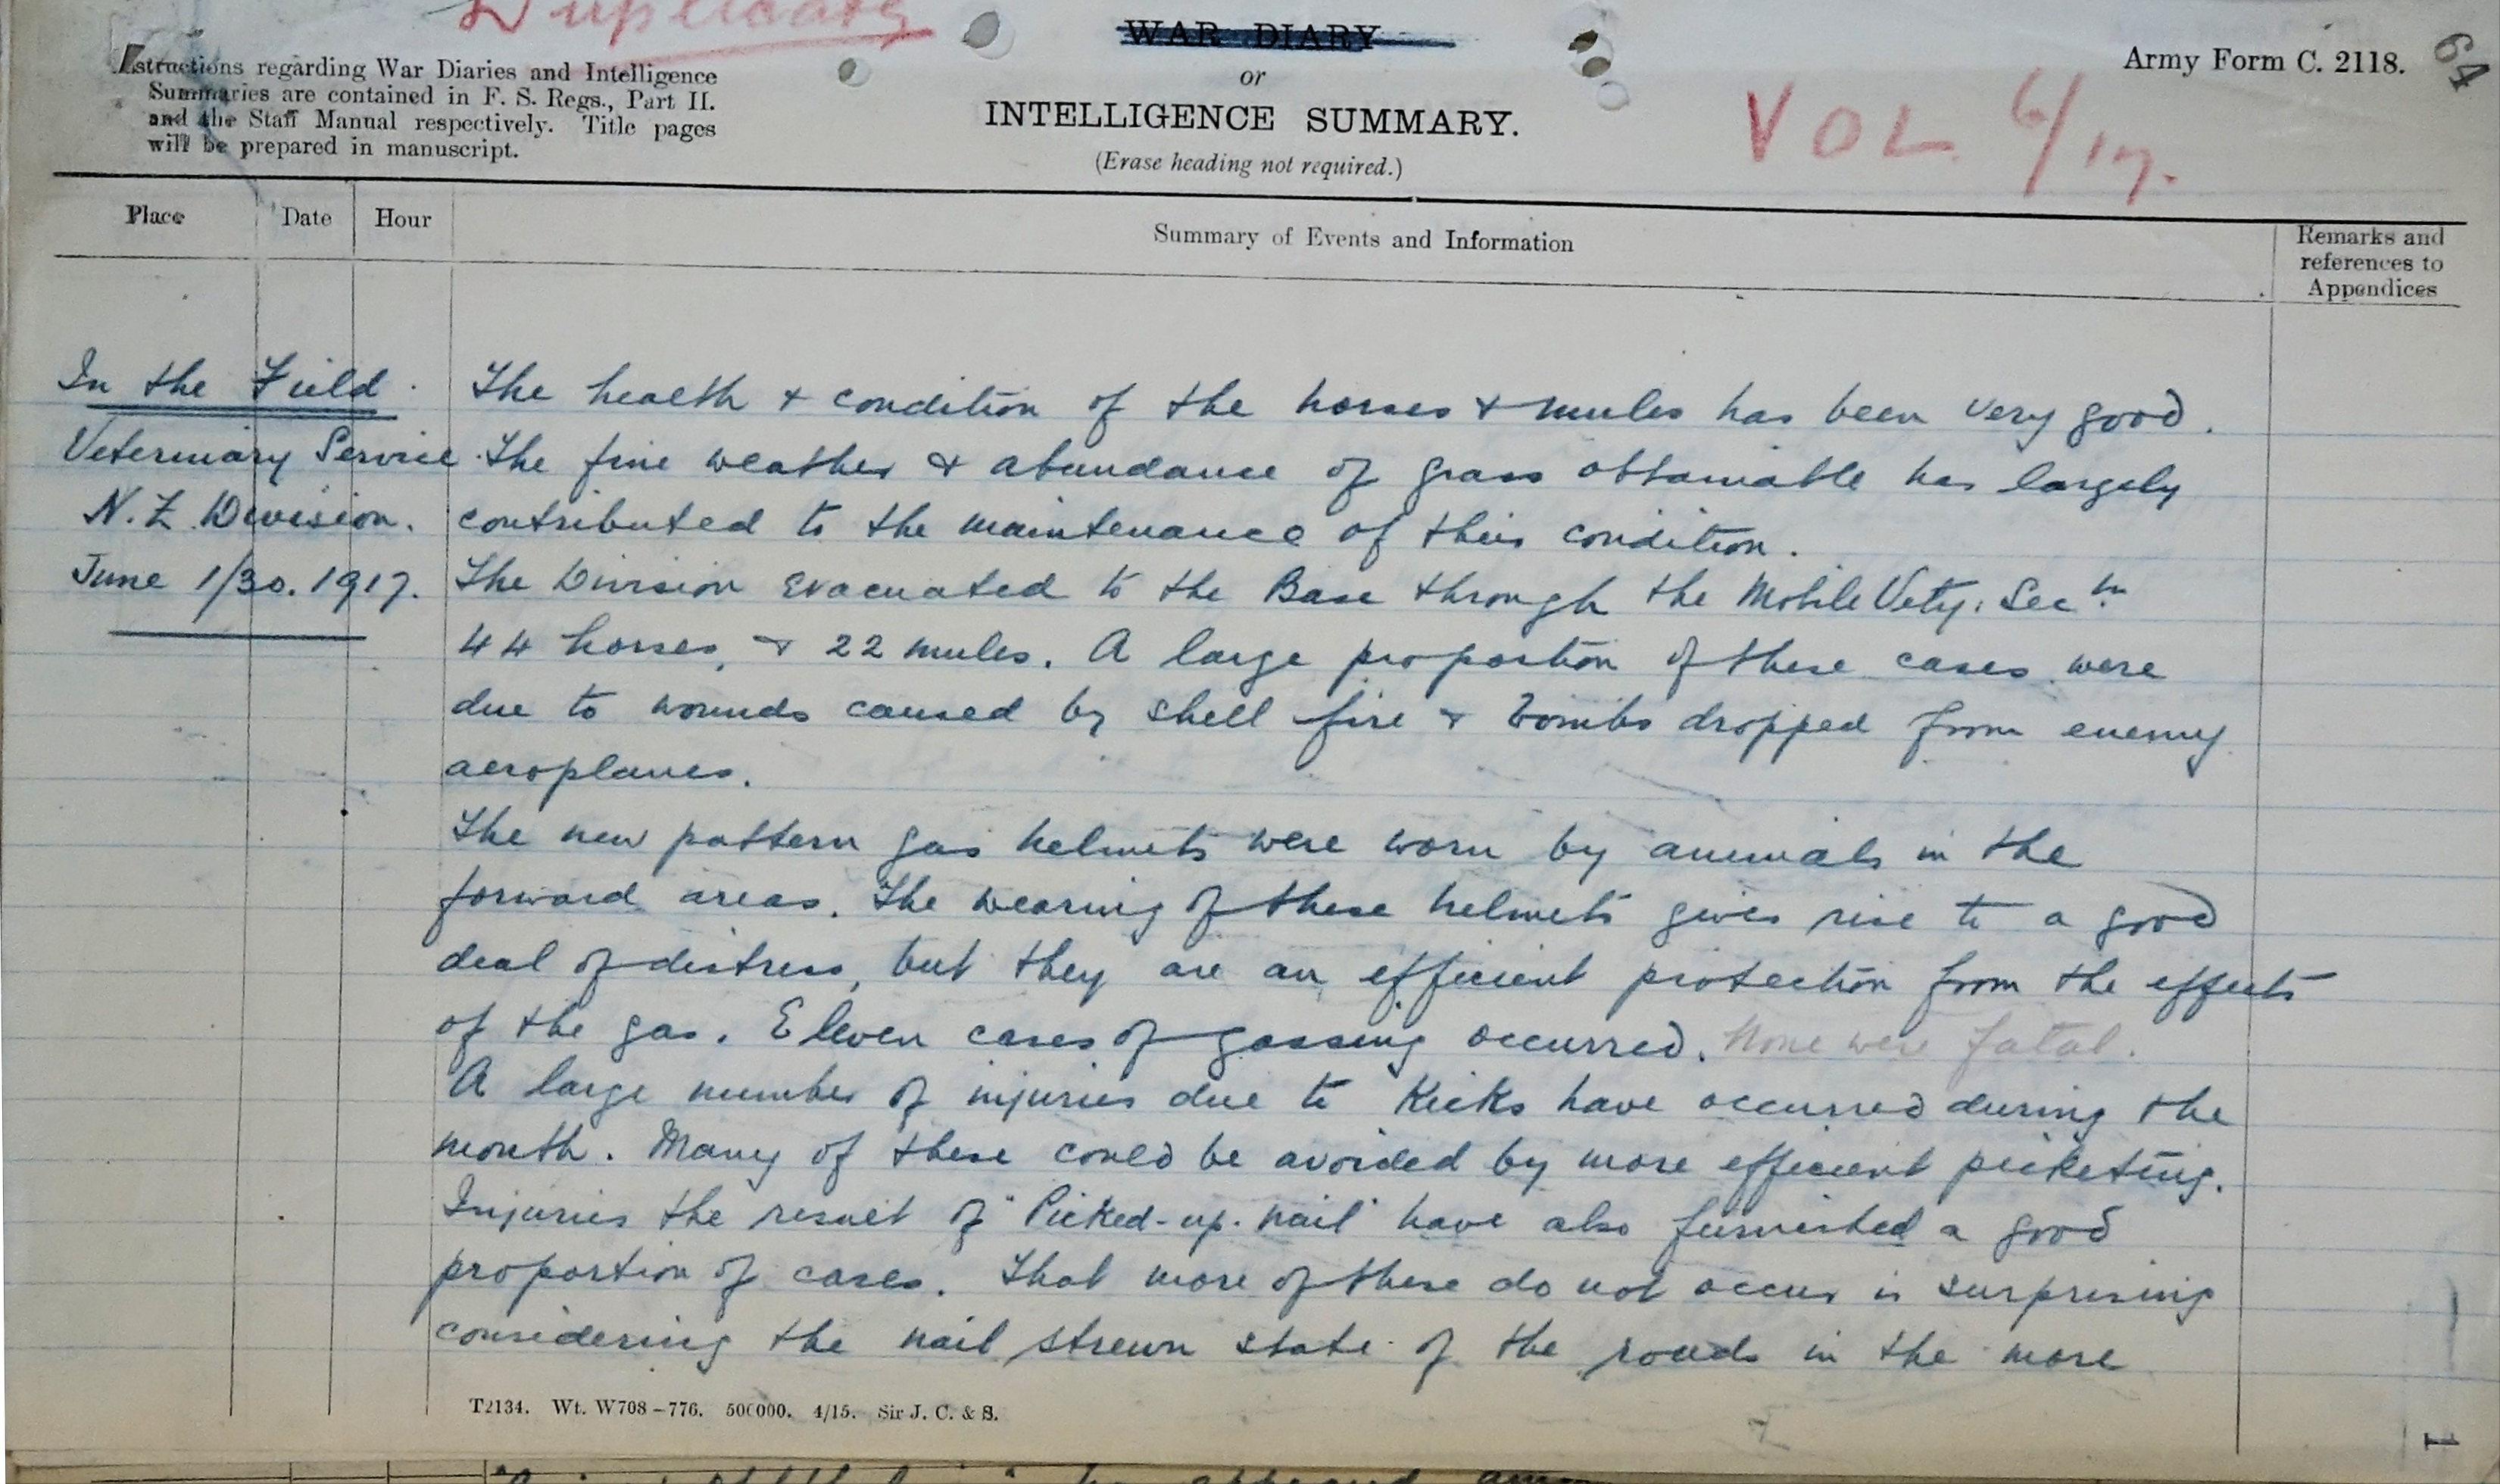 Duplicate
WAR DIARY
or
INTELLIGENCE SUMMARY.
(Erase heading not required.)
Instructions regarding War Diaries and Intelligence
Summaries are contained in F. S. Regs., Part II.
and the Staff Manual respectively. Title pages
will be prepared in manuscript.
Army Form C. 2118.
64
VOL 6/17.
Place Date Hour Summary of Events and Information Remarks and
references to
Appendices
In the Field.
Veterinary Service
N.Z. Division.
June 1/30. 1917.
The health & condition of the horses & mules has been very good.
The fine weather & abundance of grass obtainable has largely
contributed to the maintenance of their condition.
The Division evacuated to the Base through the Mobile Vety. Secn.
44 horses, & 22 mules. A large proportion of these cases were
due to wounds caused by shell fire & bombs dropped from enemy
aeroplanes.
The new pattern gas helmets were worn by animals in the
forward areas. The wearing of these helmets gives rise to a good
deal of distress, but they are an efficient protection from the effects
of the gas. Eleven cases of gassing occurred. None were fatal.
A large number of injuries due to Kicks have occurred during the
month. Many of these could be avoided by more efficient picketing.
Injuries the result of "Picked-up-nail" have also furnished a good
proportion of cases. That more of these do not occur is surprising
considering the nail strewn state of the roads in the more
T2134. Wt. W708-776. 500000. 4/15. Sir J. C. & S.
1